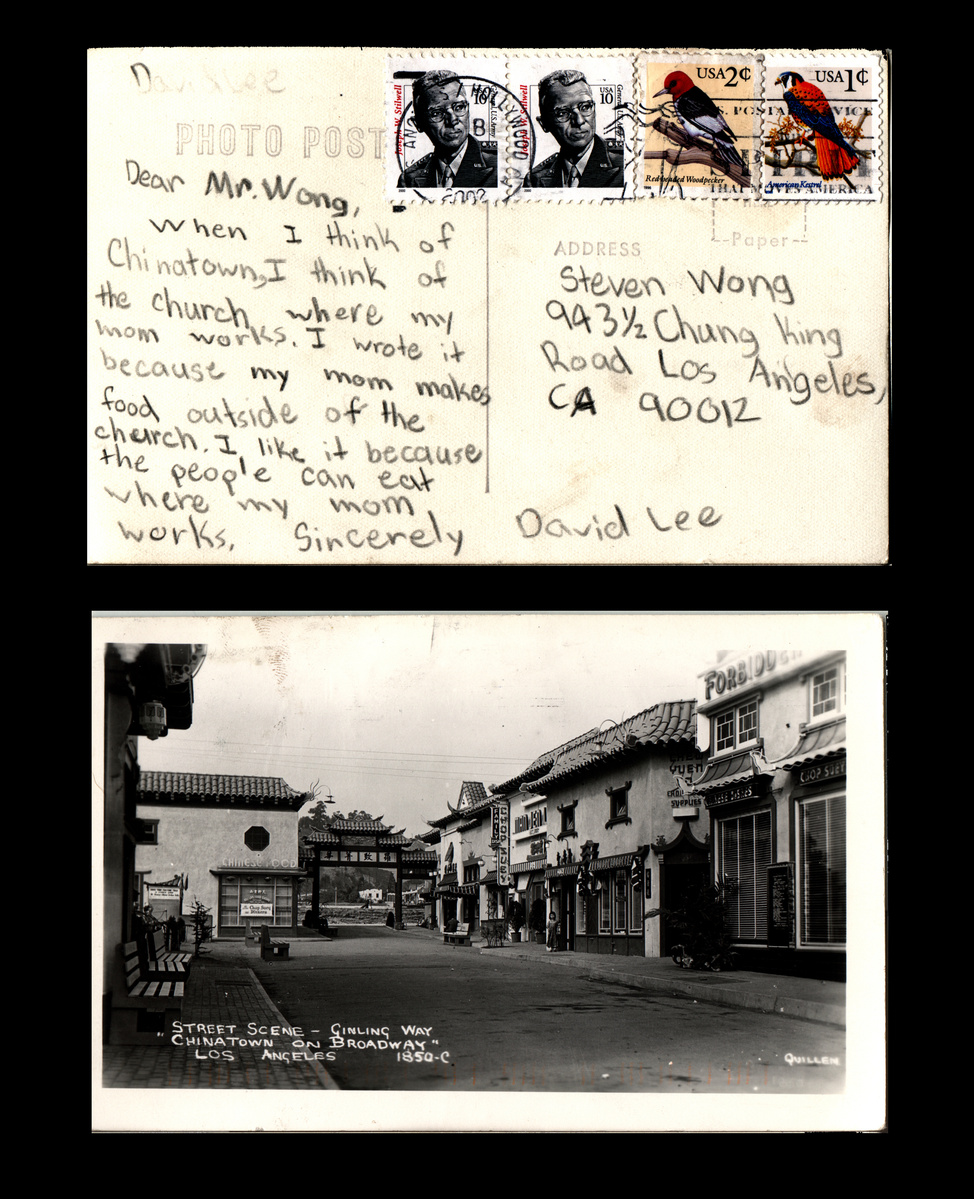 David Lee
PHOTO POST
Joseph W. Stilwell
10
General, U.S. Army
Joseph W. Stilwell
USA
10
General, U.S. Army
USA 2¢
Red-headed Woodpecker
USA 1¢
American Kestrel
U.S. POSTAL SERVICE
THAT MOVES AMERICA
2002
Dear Mr. Wong,
When I think of
Chinatown, I think of
the church where my
mom works. I wrote it
because my mom makes
food outside of the
church. I like it because
the people can eat
where my mom
works. Sincerely David Lee
Paper
ADDRESS
Steven Wong
943½ Chung King
Road Los Angeles,
CA 90012
FORBIDDEN
CHOP SUEY
YUEN
SUPPLIES
CHOP SUEY
CHINESE FOOD
"STREET SCENE - GINLING WAY
CHINATOWN ON BROADWAY"
LOS ANGELES 1850-C
QUILLEN